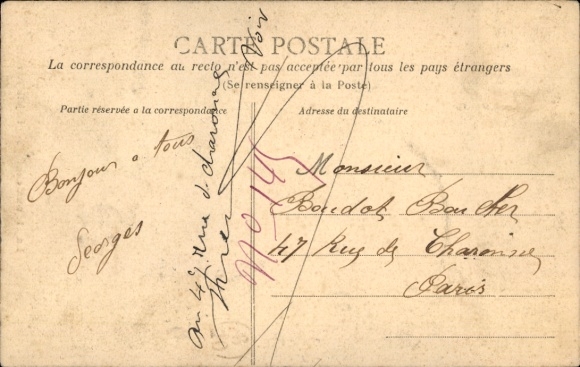 CARTE POSTALE
La correspondance au recto n'est pas acceptée par tous les pays étrangers
(Se renseigner à la Poste)
Partie réservée a la correspondance
Adresse du destinataire
Bonjour a tous
Georges
Monsieur
Boudot Boucher
47 Rue de Charonne
Paris
au 47 rue d. charonne
Voir
No 145